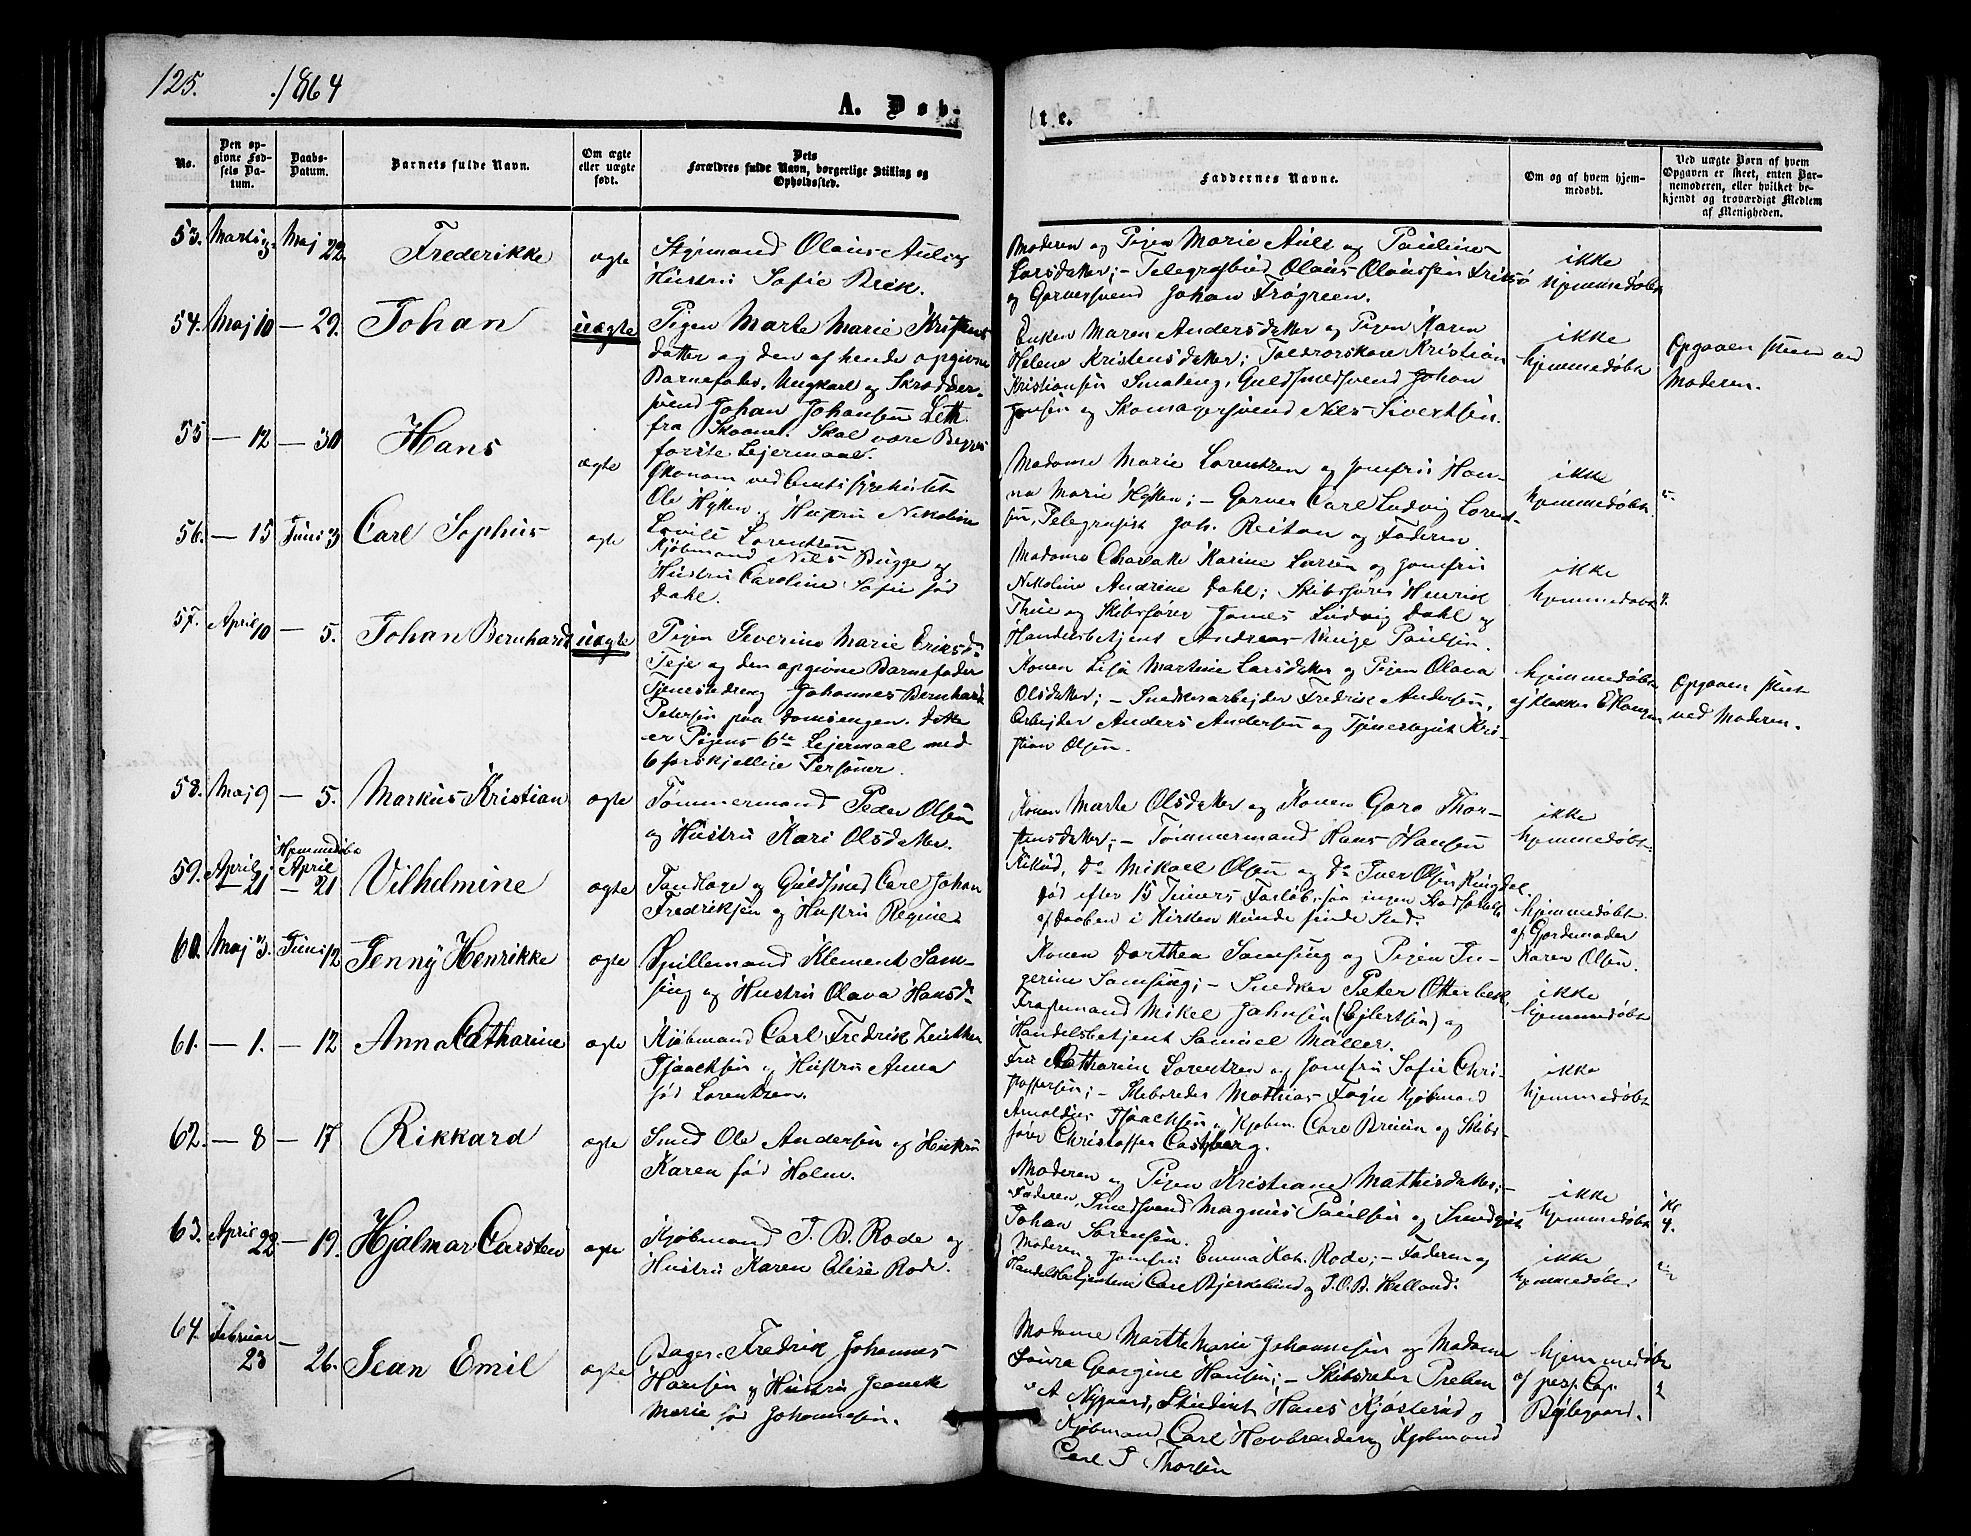 125. 1864
A. Døb-
te.
No.
Den op-
givne Fød-
sels Da-
tum.
Daabs-
Datum.
Barnets fulde Navn.
Om ægte
eller uægte
født.
Dets
Forældres fulde Navn, borgerlige Stilling og
Opholdssted.
Faddernes Navne.
Om og af hvem hjem-
medøbt.
Ved uægte Børn af hvem
Opgaven er skeet, enten Bar-
nemoderen, eller hvilket be-
kjendt og troværdigt Medlem
af Menigheden.
53. Marts 3 Maj 22. Frederikke ægte
Styrmand Olaus
Hustru Sofie Brek.
Moderen og Pigen Marie og Pauline
Larsdatter; – Telegrafbud Olaus Olaussen
og Garversvend Johan Frøgreen.
ikke
hjemmedøbt
54. Maj 10 – 29. Johan uægte
Pigen Marte Marie Kristens
datter og den af hende opgivne
Barnefader, Ungkarl og Skrædder-
svend Johan Johansen Leth
fra Skaane. Skal være Begges
første Lejermaal.
Enken Maren Andersdatter og Pigen Karen
Helene Kristensdatter; Kristian
Kristiansen Smaleng, Guldsmedsvend Johan
Jonsen og Skomagersvend Nils Sivertsen.
ikke
hjemmedøbt
Opgaven skeet ved
Moderen.
55 – 12 – 30 Hans ægte
Økonom ved Amtssygehuset
Ole Hytten og Hustru Nikoline
Lovise Lorentzen
Madame Marie Lorentzen og Jomfru Han-
na Marie Hytten; – Garver Carl Ludvig Lorent-
sen, Telegrafist Joh. Reitan og Faderen
ikke
hjemmedøbt
56. – 15 Juni 3 Carl Sophus ægte
Kjøbmand Nils Bugge og
Hustru Caroline Sofie fød
Dahl.
Madame Charlotte Karine Larsen og Jomfru
Nikoline Andrine Dahl; Skibsfører Henrik
Thue og Skibsfører James Ludvig Dahl og
Handelsbetjent Andreas Paulsen.
ikke
hjemmedøbt
57. April 10 – 5. Johan Bernhard uægte
Pigen Severine Marie Eriksd:
Teje og den opgivne Barnefader
Tjenestedreng Johannes Bernhard
Petersen paa Damsengen. Dette
er Pigens 6te Lejermaal med
6 forskjellige Personer.
Konen Lisa Martine Larsdatter og Pigen Olava
Olsdatter; – Snedkerarbejder Fredrik Andersen,
Arbejder Anders Andersen og Tjenestegut Kris-
tian Olsen.
hjemmedøbt
af Klokker
Opgaven skeet
ved Moderen.
58. Maj 9 – 5. Markus Kristian ægte
Tømmermand Peder Olsen
og Hustru Kari Olsdatter.
Konen Marte Olsdatter og Konen Goro Thor-
stensdatter; – Tømmermand Hans Hansen
Do Mikael Olsen og Do Iver Olsen Ringdal
ikke
hjemmedøbt
59. April 21 Hjemmedøbt April – 21 Vilhelmine ægte
Tandlæge og Guldsmed Carl Johan
Fredriksen og Hustru Regine
Død efter 15 Timers Forløb, saa ingen Stadfæstelse
af Daaben i Kirken kunde finde Sted.
hjemmedøbt
af Gjordemoder
Karen Olsen.
60. Maj 3. Juni 12 Jenny Henrikke ægte
Spillemand Klement Sam-
sing og Hustru Olava Hansd:
Konen Dorthea Samsing og Pigen In-
gerine Samsing; – Snedker Peter Otterbek,
Mikel Johnsen (Ejlertsen) og
Handelsbetjent Samuel Møller.
ikke
hjemmedøbt
61. – 1. – 12 Anna Catharine ægte
Kjøbmand Carl Fredrik
Isaachsen og Hustru Anna
fød Lorentzen.
Fru Catharine Lorentzen og Jomfru Sofie Chri-
stoffersen; – Skibsreder Mathias Føyn Kjøbmand
Arnoldus Isaachsen, Kjøbm. Carl Bruun og Skibs-
fører Christoffer Castberg.
ikke
hjemmedøbt
62. – 8 – 17 Rikkard ægte
Smed Ole Andersen og Hustru
Karen fød Holm.
Moderen og Pigen Kristiane Mathisdatter; –
Faderen, Smedsvend Magnus Paulsen og
Johan Sørensen.
ikke
hjemmedøbt
63. April 22 – 19. Hjalmar Carsten ægte
Kjøbmand J. B. Rode og
Hustru Karen Elise Rod.
Moderen og Jomfru Emma Kat. Rode; – Faderen og
Handelsbetjentene Carl Bjerkelund og J. O. B. Helland.
ikke
hjemmedøbt
64. Februar 23 – 26. Jean Emil ægte
Bager Fredrik Johannes
Hansen og Hustru Jeanette
Marie fød Johannesen.
Madame Marthe Marie Johannesen og Madame
Laura Georgine Hansen; – Skibsreder Preben
A Nygaard, Student Hans Kjøsterud og
Kjøbmand Carl og Kjøbmand
Carl J Thorsen
hjemmedøbt
af pers. Cap.